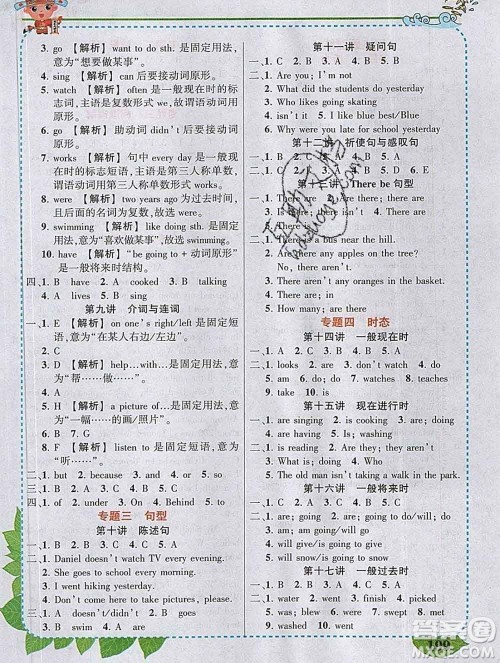 3. go 【解析】 want to do sth. 是固定用法,
意为“想要做某事”。
4. sing 【解析】 can 后要接动词原形。
5. watch 【解析】 often 是一般现在时的标
志词,主语是复数形式 we,故谓语动词用
原形。
6. go 【解析】 助动词 didn't 后要接动词
原形。
7. works 【解析】 句中 every day 是一般现
在时的标志短语,主语是第三人称单数,
谓语动词用第三人称单数形式。
8. were 【解析】 two years ago 为过去时间,
且后面的名词为复数,故填 were。
9. swimming 【解析】 like doing sth. 是固
定用法,意为“喜欢做某事”,故选 swimming。
10. have 【解析】 “be going to + 动词原形”
是一般将来时结构。
四、1. B have 2. A cooked 3. B talking
4. A lives 5. B sing
第九讲 介词与连词
一、1. E 【解析】 on one's right/left 是固定短
语,意为“在某人右边/左边”。
2. C
3. D 【解析】 help…with…是固定用法,意
为“帮……做……”。
4. A 【解析】 a picture of…是固定短语,意
为“一幅……的画/照片”。
5. B 6. B 7. G
8. F 【解析】 listen to 是固定短语,意为
“听……”。
二、1. but 2. because 3. and 4. or 5. so
三、1. C 2. A 3. B 4. A 5. B
四、1. of 2. under 3. On 4. Behind 5. to
专题三 句型
第十讲 陈述句
一、1. B 2. A 3. C 4. B 5. C
二、1. Daniel doesn't watch TV every evening.
2. She goes to school every morning.
3. I went hiking yesterday.
4. Don't come here to take pictures.
三、1. A doesn't/didn't 2. B goes
3. B swim 4. A am
第十一讲 疑问句
一、1. C 2. B 3. C 4. A 5. C
二、1. Are you; I'm not
2. What did the students do yesterday
3. Who likes going skating
4. isn't it 5. I like blue best/Blue
6. Why were you late for school yesterday
第十二讲 祈使句与感叹句
一、1. B 2. A 3. B 4. A 5. B
There be 句型
4. are
There is a bus near the hill.
2. Are there any apples on the tree?
No, there aren't.
3. There aren't any oranges in the basket.
4. There; is
5. How many; are there
专题四 时态
第十四讲 一般现在时
一、1. B 2. A 3. B 4. C 5. A
二、1. looks 2. are 3. go 4. has 5. do
第十五讲 现在进行时
一、1. are singing 2. is cooking 3. are doing
4. are having 5. Is; washing
三、1. are washing 2. are playing
3. What is; doing
4. The old man isn't taking a walk in the park.
第十六讲 一般将来时
一、1. C 2. B 3. A 4. B 5. A
二、1. are; going to do 2. are; going to do
3. will give 4. is going to snow/will snow
5. will snow/is going to snow
第十七讲 一般过去时
一、1. B 2. A 3. C 4. C 5. B
二、1. water 2. went 3. finish 4. picked
5. washed 6. was
106
答案圈
MXQE.COM